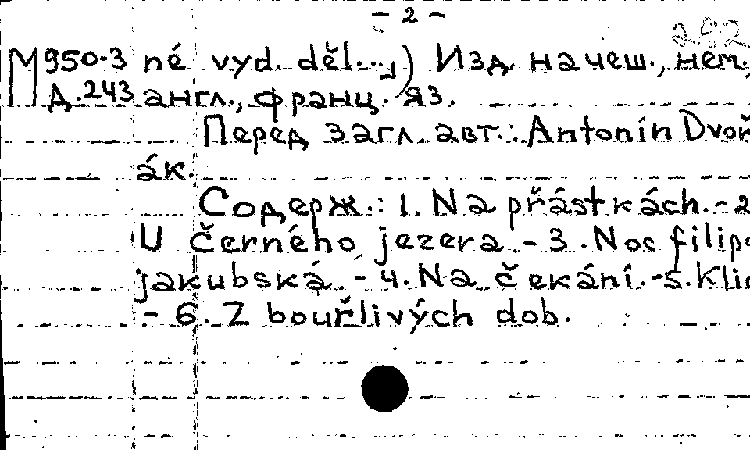 - 2 -
292
М950-3 né vyd. děl...,) Изд. на чеш., нем.
Д.243 англ., франц. яз.
Перед загл. авт.: Antonín Dvoř
ák.
Содерж.: 1. Na přástkách. - 2
U černého jezera. - 3. Noc filipo
jakubská. - 4. Na čekání. - 5. Klid
- 6. Z bouřlivých dob.